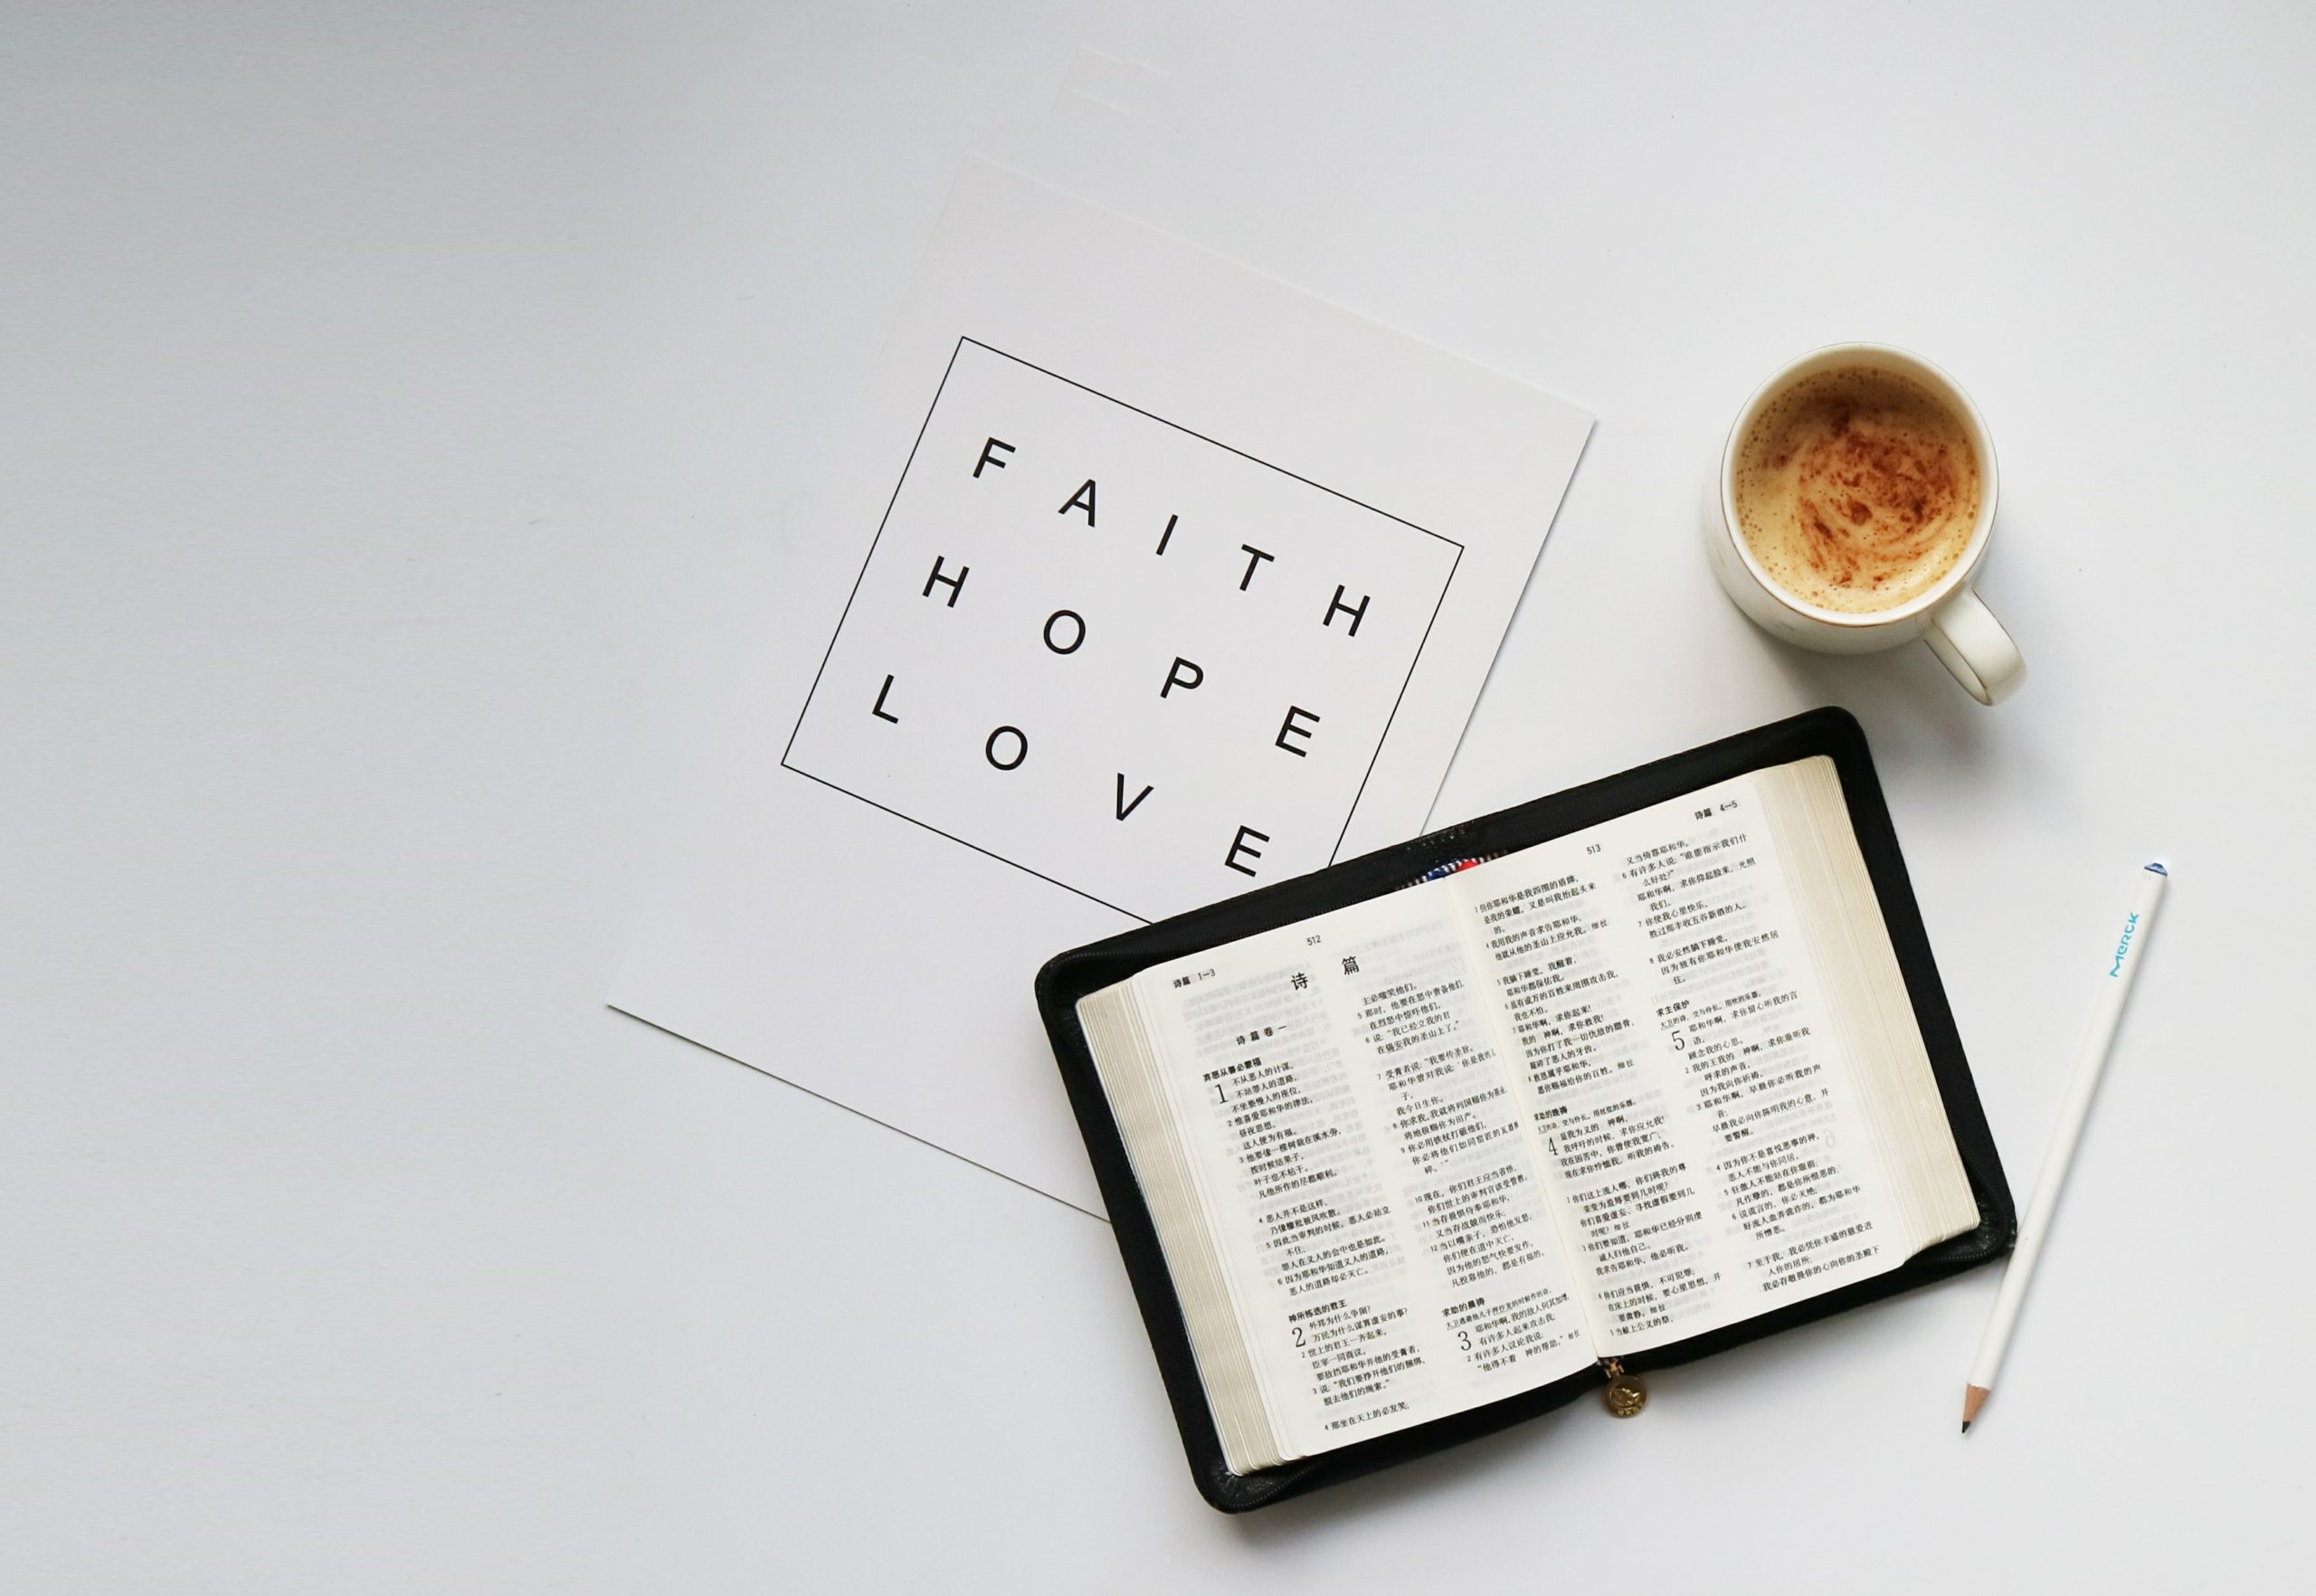 F A I T H
H O P E
L O V E
MERCK
诗篇 1—3
512
诗 篇
诗 篇 卷 一
弃恶从善必蒙福
1 不从恶人的计谋,
不站罪人的道路,
不坐亵慢人的座位,
2 惟喜爱耶和华的律法,
昼夜思想,
这人便为有福。
3 他要像一棵树栽在溪水旁,
按时候结果子,
叶子也不枯干。
凡他所作的尽都顺利。
4 恶人并不是这样,
乃像糠秕被风吹散。
5 因此当审判的时候,恶人必站立
不住;
罪人在义人的会中也是如此。
6 因为耶和华知道义人的道路,
恶人的道路却必灭亡。
神所拣选的君王
2 外邦为什么争闹?
万民为什么谋算虚妄的事?
2 世上的君王一齐起来,
臣宰一同商议,
要敌挡耶和华并他的受膏者,
3 说:“我们要挣开他们的捆绑,
脱去他们的绳索。”
4 那坐在天上的必发笑;
主必嗤笑他们。
5 那时,他要在怒中责备他们,
在烈怒中惊吓他们,
6 说:“我已经立我的君
在锡安我的圣山上了。”
7 受膏者说:“我要传圣旨。
耶和华曾对我说:‘你是我的儿
子,
我今日生你。
8 你求我,我就将列国赐你为基业,
将地极赐你为田产。
9 你必用铁杖打破他们,
你必将他们如同窑匠的瓦器摔
碎。’”
10 现在,你们君王应当省悟,
你们世上的审判官该受管教。
11 当存畏惧侍奉耶和华,
又当存战兢而快乐。
12 当以嘴亲子,恐怕他发怒,
你们便在道中灭亡,
因为他的怒气快要发作。
凡投靠他的,都是有福的。
求助的晨祷
大卫逃避他儿子押沙龙的时候作的诗。
3 耶和华啊,我的敌人何其加增,
有许多人起来攻击我。
2 有许多人议论我说:
“他得不着 神的帮助。” 细拉
513
诗篇 4—5
3 但你耶和华是我四围的盾牌,
是我的荣耀,又是叫我抬起头来
的。
4 我用我的声音求告耶和华,
他就从他的圣山上应允我。细拉
5 我躺下睡觉,我醒着,
耶和华都保佑我。
6 虽有成万的百姓来周围攻击我,
我也不怕。
7 耶和华啊,求你起来!
我的 神啊,求你救我!
因为你打了我一切仇敌的腮骨,
敲碎了恶人的牙齿。
8 救恩属乎耶和华,
愿你赐福给你的百姓。细拉
求助的晚祷
大卫的诗,交与伶长。用丝弦的乐器。
4 显我为义的 神啊,
我呼吁的时候,求你应允我!
我在困苦中,你曾使我宽广;
现在求你怜恤我,听我的祷告。
2 你们这上流人哪,你们将我的尊
荣变为羞辱要到几时呢?
你们喜爱虚妄、寻找虚假要到几
时呢?细拉
3 你们要知道,耶和华已经分别虔
诚人归他自己。
我求告耶和华,他必听我。
4 你们应当畏惧,不可犯罪;
在床上的时候,要心里思想,并
要肃静。细拉
5 当献上公义的祭,
又当倚靠耶和华。
6 有许多人说:“谁能指示我们什
么好处?”
耶和华啊,求你仰起脸来,光照
我们。
7 你使我心里快乐,
胜过那丰收五谷新酒的人。
8 我必安然躺下睡觉,
因为独有你耶和华使我安然居
住。
求主保护
大卫的诗,交与伶长。用吹的乐器。
5 耶和华啊,求你留心听我的言
语,
顾念我的心思。
2 我的王我的 神啊,求你垂听我
呼求的声音,
因为我向你祈祷。
3 耶和华啊,早晨你必听我的声
音;
早晨我必向你陈明我的心意,并
要警醒。
4 因为你不是喜悦恶事的神,
恶人不能与你同居。
5 狂傲人不能站在你眼前;
凡作孽的,都是你所恨恶的。
6 说谎言的,你必灭绝;
好流人血弄诡诈的,都为耶和华
所憎恶。
7 至于我,我必凭你丰盛的慈爱进
入你的居所;
我必存敬畏你的心向你的圣殿下